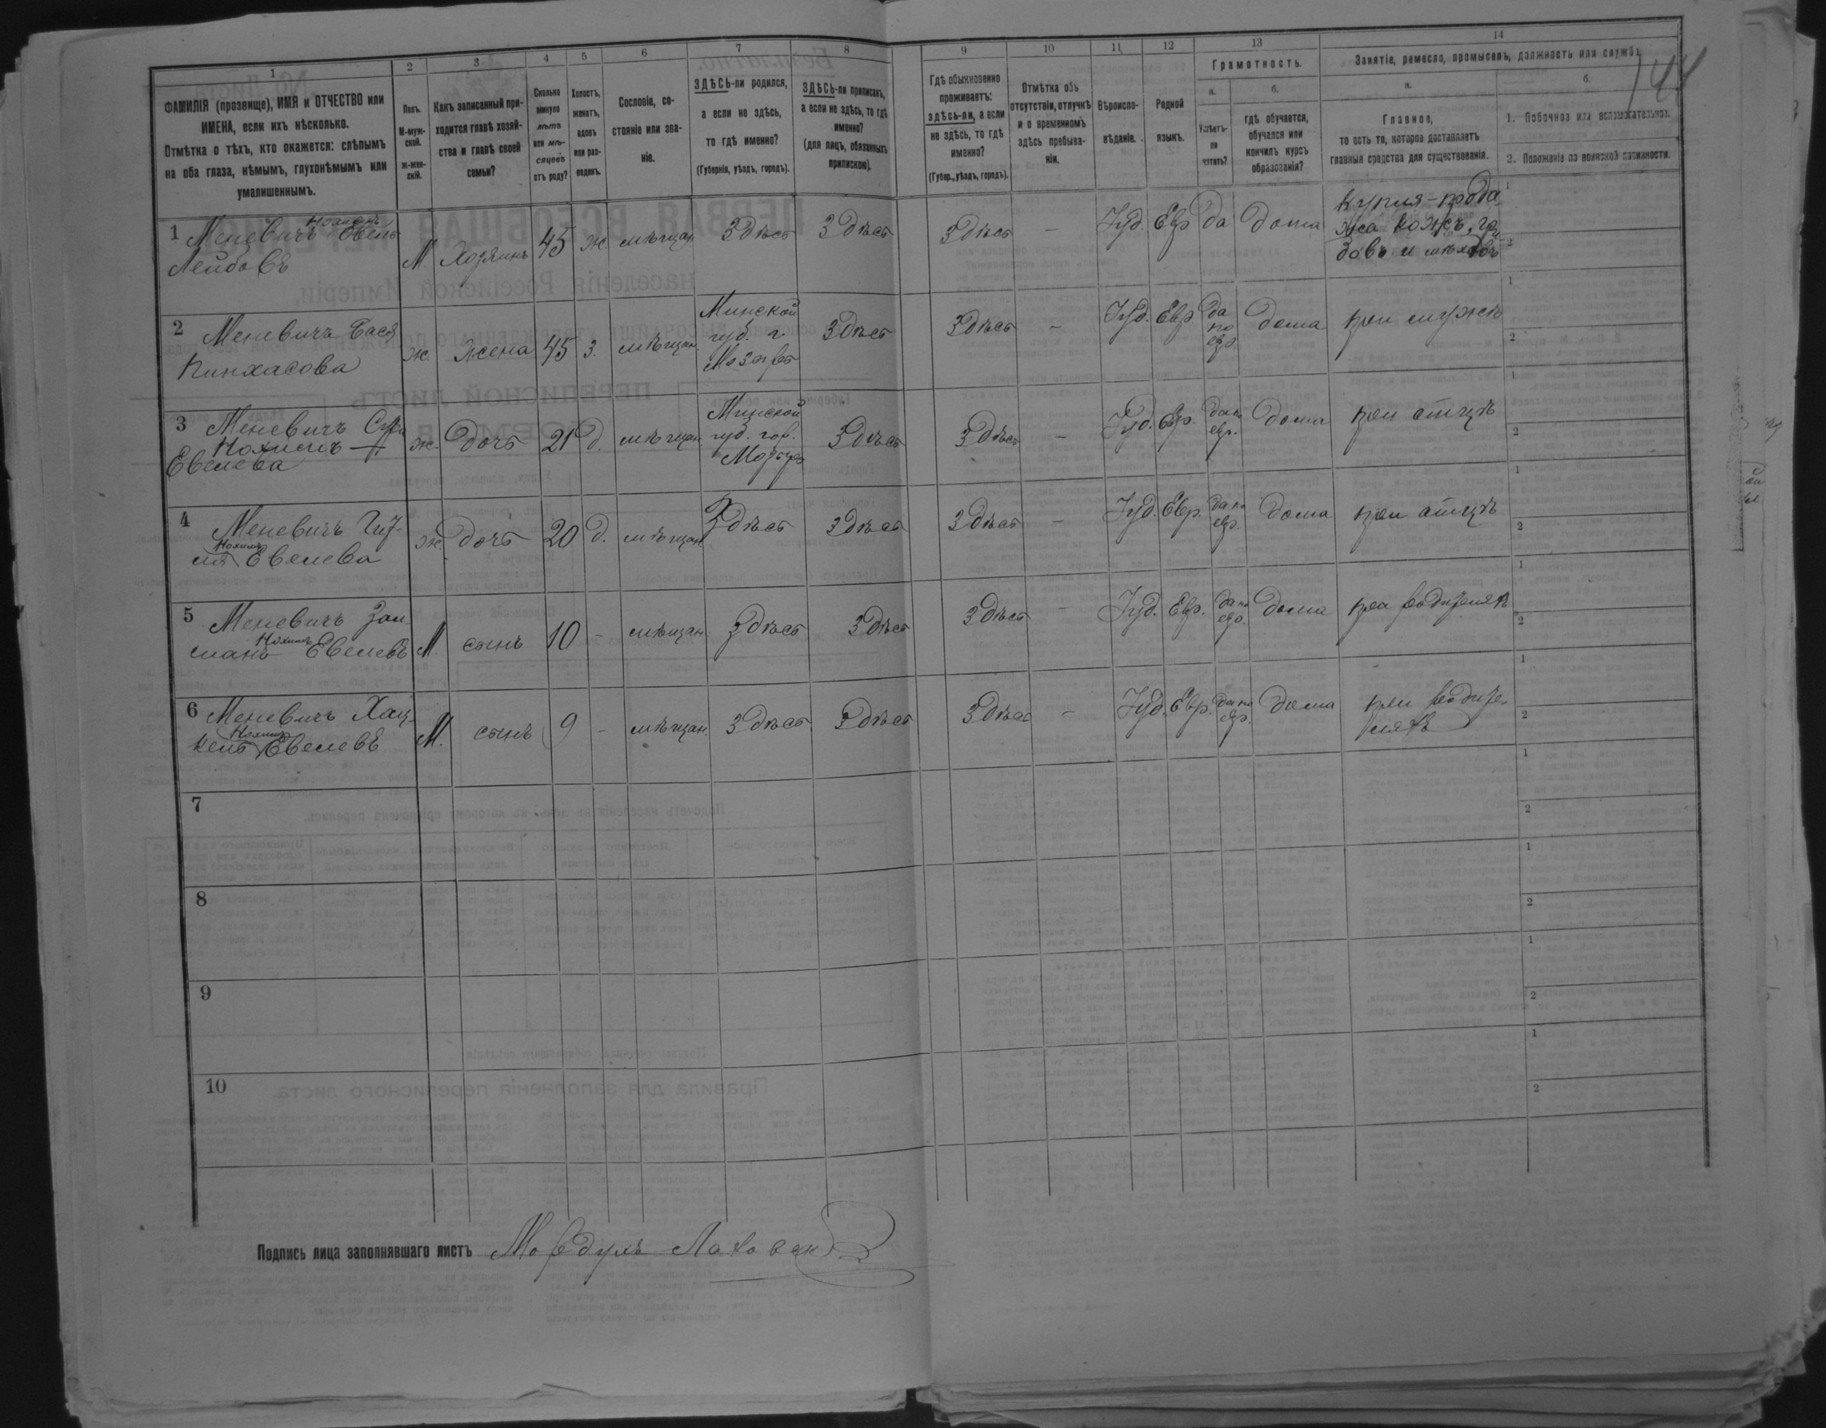 1 2 3 4 5 6 7 8 9 10 11 12 13 14
ФАМИЛІЯ (прозвище), ИМЯ и ОТЧЕСТВО или
ИМЕНА, если ихъ нѣсколько.
Отмѣтка о тѣхъ, кто окажется: слѣпымъ
на оба глаза, нѣмымъ, глухонѣмымъ или
умалишеннымъ.
Полъ.
М-муж-
ской.
Ж-жен-
скій.
Какъ записанный при-
ходится главѣ хозяй-
ства и главѣ своей
семьи?
Сколько
минуло
лѣтъ
или мѣ-
сяцевъ
отъ роду?
Холостъ,
женатъ,
вдовъ
или раз-
веденъ.
Сословіе, со-
стояніе или зва-
ніе.
ЗДѢСЬ-ли родился,
а если не здѣсь,
то гдѣ именно?
(Губернія, уѣздъ, городъ).
ЗДѢСЬ-ли приписанъ,
а если не здѣсь, то гдѣ
именно?
(для лицъ, обязанныхъ
припискою).
Гдѣ обыкновенно
проживаетъ:
здѣсь-ли, а если
не здѣсь, то гдѣ
именно?
(Губер., уѣздъ, городъ).
Отмѣтка объ
отсутствіи, отлучкѣ
и о временномъ
здѣсь пребыва-
ніи.
Вѣроиспо-
вѣданіе.
Родной
языкъ.
Грамотность.
а.
Умѣетъ-
ли
читать?
б.
гдѣ обучается,
обучался или
кончилъ курсъ
образованія?
Занятіе, ремесло, промыселъ, должность или служба.
а.
Главное,
то есть то, которое доставляетъ
главныя средства для существованія.
б.
1. Побочное или вспомогательное.
2. Положеніе по воинской повинности.
1 Меневичъ Евель
Лейбовъ
М. Хозяинъ 45 ж мѣщан. Здѣсь Здѣсь Здѣсь - Іуд. Евр да дома
Купля-прода
жа кожъ,
2 Меневичъ Бася
Пинхасова
ж жена 45 з. мѣщан
Минской
губ. г.
Здѣсь Здѣсь - Іуд. Евр
да
по
евр.
дома при мужѣ
3 Меневичъ
Нохимъ
Евелева
ж. дочь 21 д. мѣщан
Минской
губ. гор.
Здѣсь Здѣсь - Іуд. Евр.
да по
евр.
дома при отцѣ
4 Меневичъ
Нохимъ
Евелева
ж дочь 20 д. мѣщан Здѣсь Здѣсь Здѣсь - Іуд. Евр.
да по
евр.
дома при отцѣ
5 Меневичъ Зал
Нохимъ
манъ Евелевъ
М. сынъ 10 - мѣщан Здѣсь Здѣсь Здѣсь - Іуд. Евр.
да по
евр.
дома при родителяхъ
6 Меневичъ Хац
Нохимъ
кель Евелевъ
М. сынъ 9 - мѣщан. Здѣсь Здѣсь Здѣсь - Іуд. Евр.
да по
евр.
дома при родите
ляхъ
7
8
9
10
Подпись лица заполнявшаго листъ